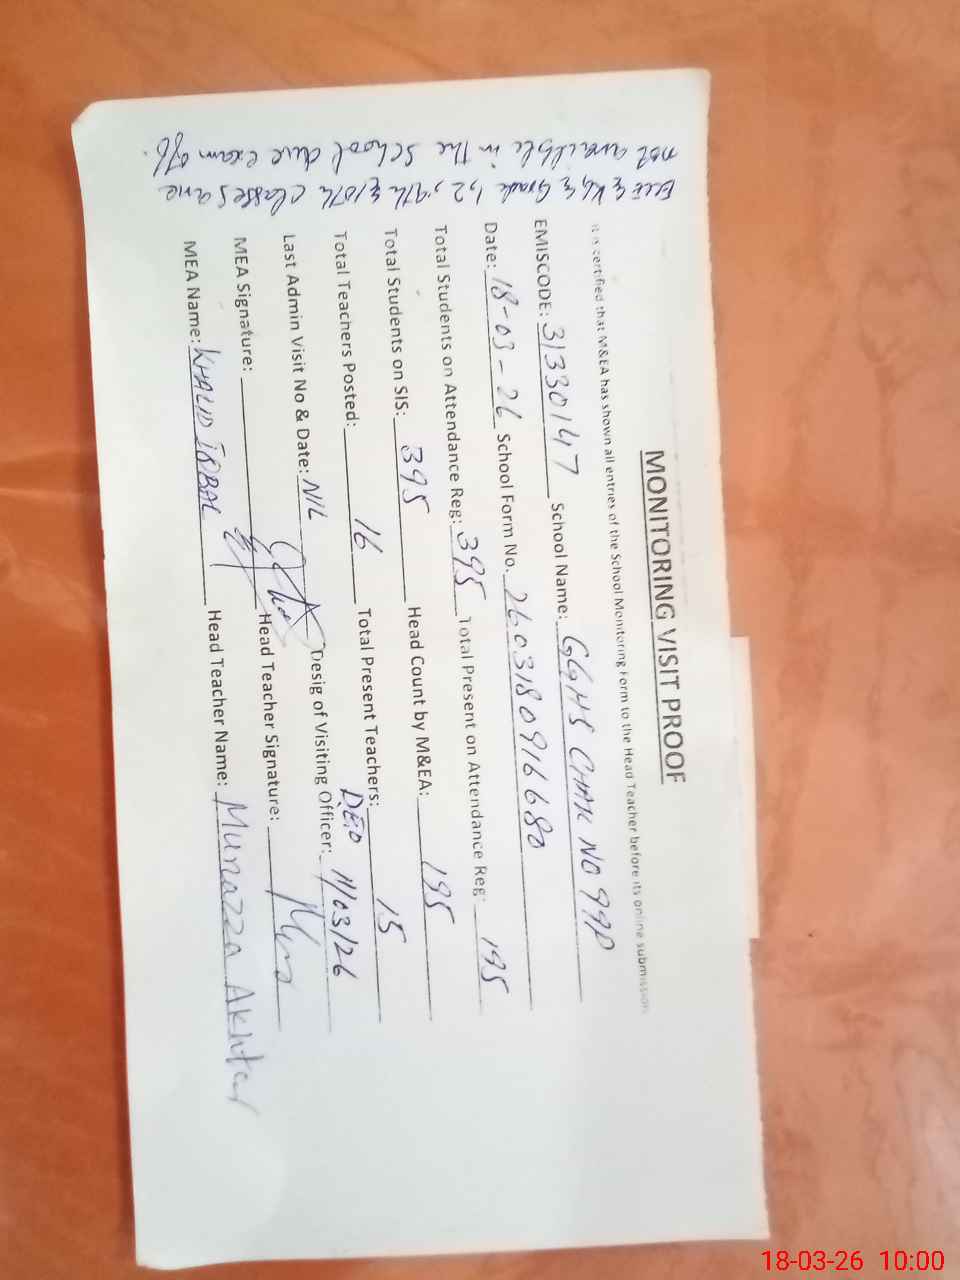 MONITORING VISIT PROOF
It is certified that M&EA has shown all entries of the School Monitoring Form to the Head Teacher before its online submission
EMISCODE: 31330147 School Name: GGHS CHAK NO 99P
Date: 18-03-26 School Form No. 2603180916680
Total Students on Attendance Reg: 395 Total Present on Attendance Reg: 195
Total Students on SIS: 395 Head Count by M&EA: 195
Total Teachers Posted: 16 Total Present Teachers: 15
Last Admin Visit No & Date: NIL Desig of Visiting Officer: DEO 11/03/26
MEA Signature: Head Teacher Signature:
MEA Name: KHALID IQBAL Head Teacher Name: Munazza Akhter
& KG & Grade 1,2, 9th & 10th classes are
not available in the school due exam
18-03-26 10:00